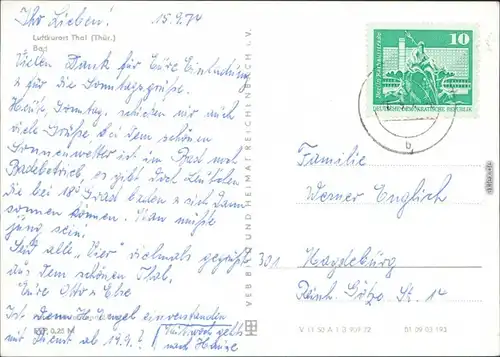 Ihr Lieben! 15.9.74
Luftkurort Thal (Thür.)
Bad
Vielen Dank für Eure Einladung
u für die Sonntagsgrüße.
Heute, Sonntag, schicken wir auch
viele Grüße bei dem schönen
Sonnenwetter ist im Bad noch
Badebetrieb, es gibt doch Leutchen
die bei 18° Grad baden u sich dann
sonnen können. Man müßte
jung sein!
Seid alle "Vier" vielmals gegrüßt
aus dem schönen Thal.
Eure Otto u Else
Ist denn H. Engel einverstanden
mit Dienst ab 19.9.? Mittwoch geht's
nach Hause
EVP 0,25 M
VEB BILD UND HEIMAT REICHENBACH i. V.
10
DEUTSCHE DEMOKRATISCHE REPUBLIK
b
Familie
Werner Englich
301 Magdeburg
Reinh. Götze Str. 14
V 11 50 A 1 0 909 72 01 09 03 193